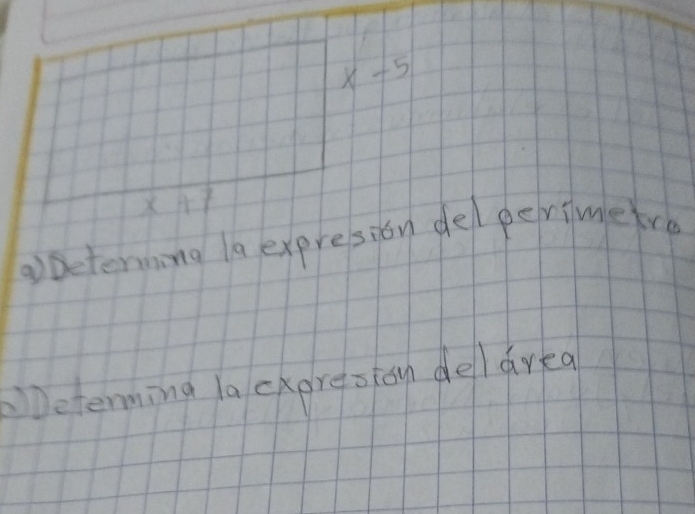 x - 5
x + 7
a) Determina la expresión del perimetro
Determina la expresión del área